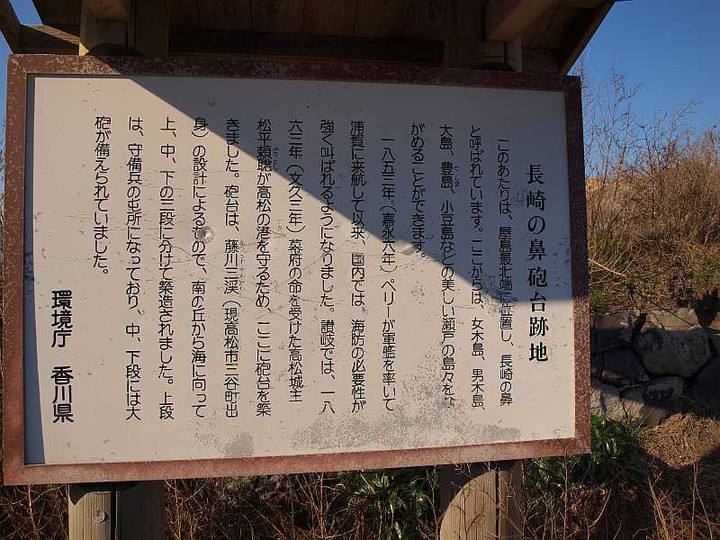 長崎の鼻砲台跡地
このあたりは、屋島最北端に位置し、長崎の鼻
と呼ばれています。ここからは、女木島、男木島、
大島、豊島、小豆島などの美しい瀬戸の島々をな
がめることができます。
一八五三年(嘉永六年)ペリーが軍艦を率いて
浦賀に来航して以来、国内では、海防の必要性が
強く叫ばれるようになりました。讃岐では、一八
六三年(文久三年)幕府の命を受けた高松城主
松平頼聰が高松の港を守るため、ここに砲台を築
きました。砲台は、藤川三渓(現高松市三谷町出
身)の設計によるもので、南の丘から海に向って
上、中、下の三段に分けて築造されました。上段
は、守備兵の屯所になっており、中、下段には大
砲が備えられていました。
環境庁 香川県